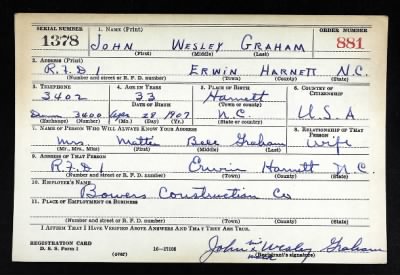 SERIAL NUMBER 1. NAME (Print) ORDER NUMBER
1378 JOHN WESLEY GRAHAM 881
(First) (Middle) (Last)
2. ADDRESS (Print)
R.F.D 1 ERWIN HARNETT N.C.
(Number and street or R. F. D. number) (Town) (County) (State)
3. TELEPHONE 4. AGE IN YEARS 5. PLACE OF BIRTH 6. COUNTRY OF CITIZENSHIP
3402 33 Harnett
DATE OF BIRTH (Town or county)
Dunn 3400 Apr 28 1907 N.C. U.S.A
(Exchange) (Number) (Mo.) (Day) (Yr.) (State or country)
7. NAME OF PERSON WHO WILL ALWAYS KNOW YOUR ADDRESS 8. RELATIONSHIP OF THAT PERSON
Mrs. Mattie Bell Graham Wife
(Mr., Mrs., Miss) (First) (Middle) (Last)
9. ADDRESS OF THAT PERSON
R.F.D 1 Erwin Harnett N.C.
(Number and street or R. F. D. number) (Town) (County) (State)
10. EMPLOYER'S NAME
Bowers Construction Co
11. PLACE OF EMPLOYMENT OR BUSINESS
(Number and street or R. F. D. number) (Town) (County) (State)
I AFFIRM THAT I HAVE VERIFIED ABOVE ANSWERS AND THAT THEY ARE TRUE.
REGISTRATION CARD
D. S. S. Form 1 16—17105 John Wesley Graham
(over) (Registrant's signature)